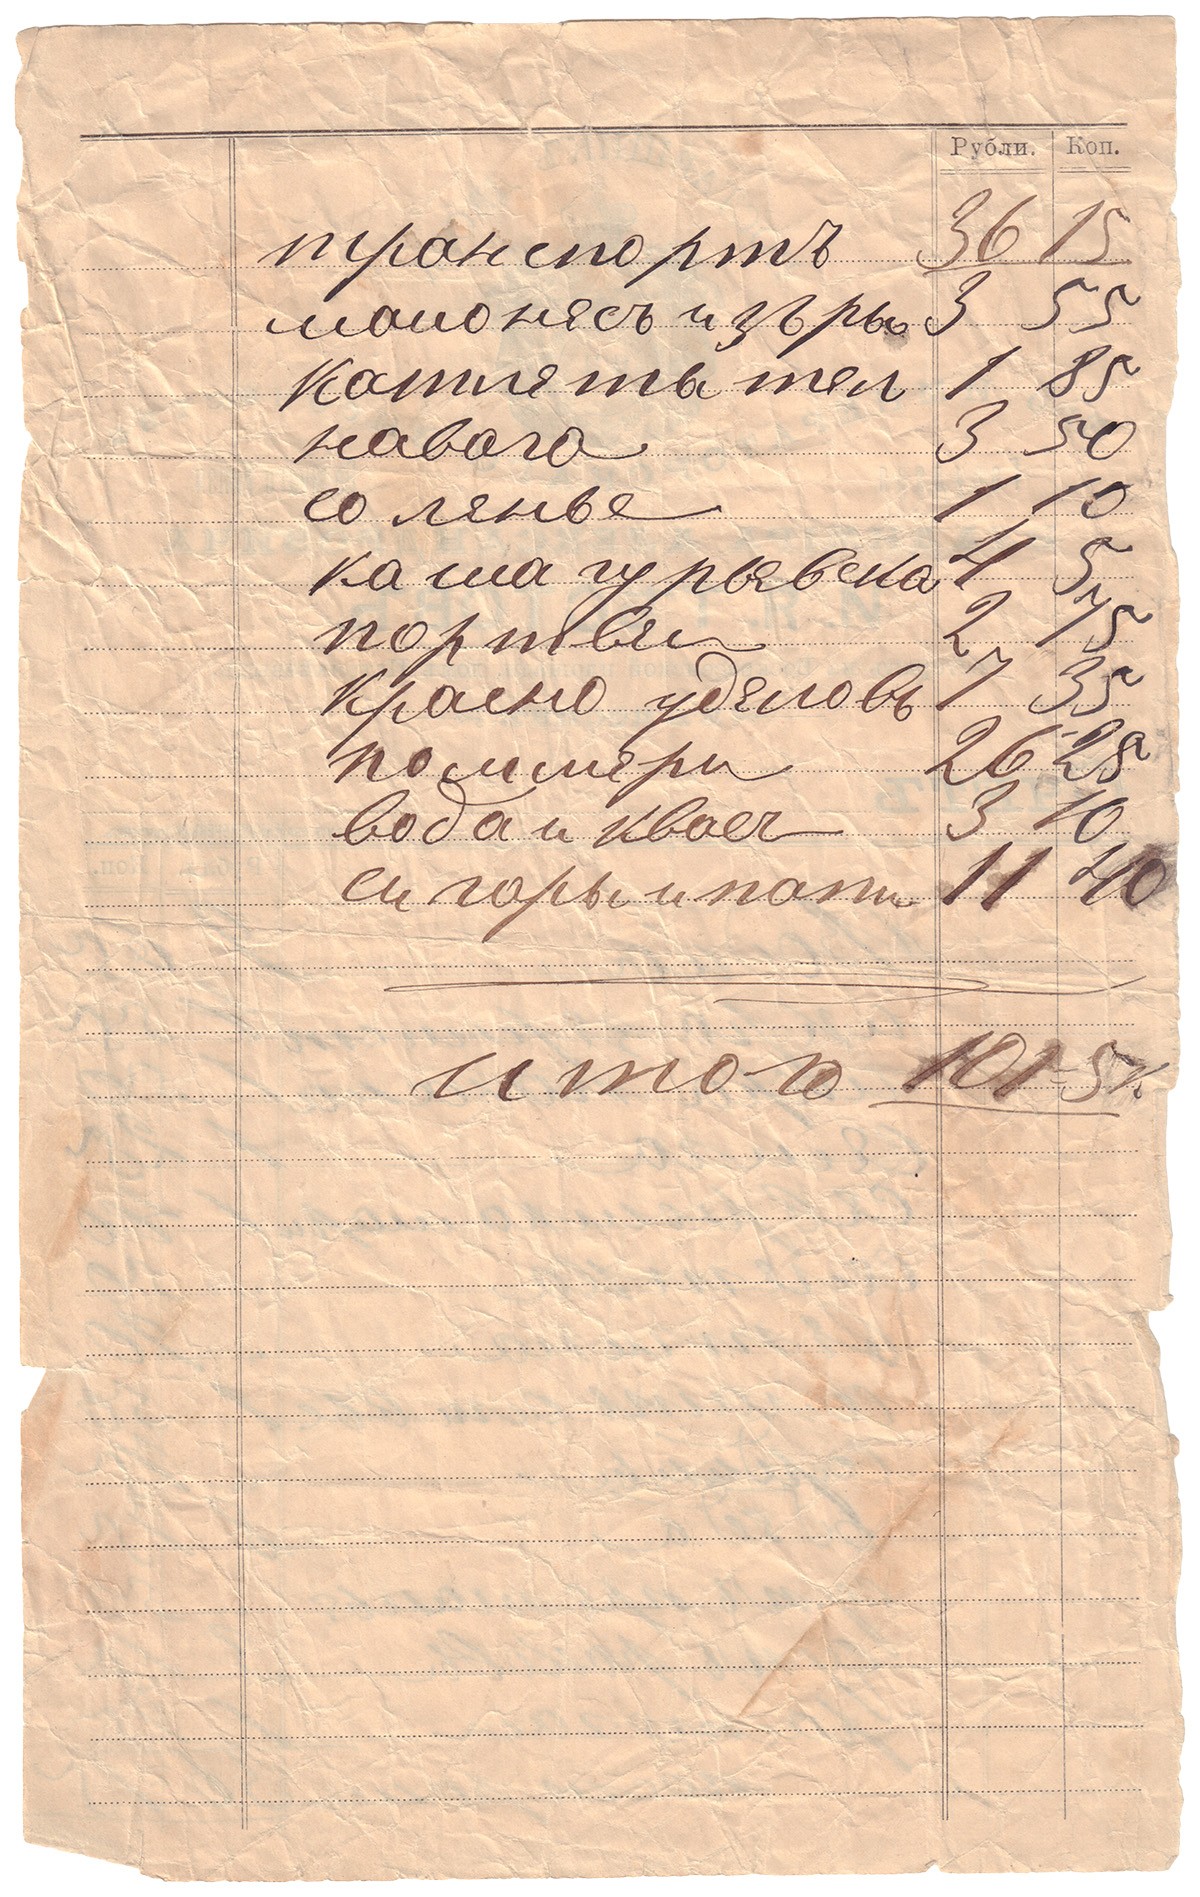 Рубли. Коп.
транспортъ 36 15
маионезъ изъ ры 3 55
Катлеты тел 1 85
навага 3 50
соленье 1 10
каша гурьевска 4 5
портвеи 2 75
красно уделовъ 7 35
поммери 26 25
вода и квасъ 3 10
сигары и папи 11 40
итого 101 5 к